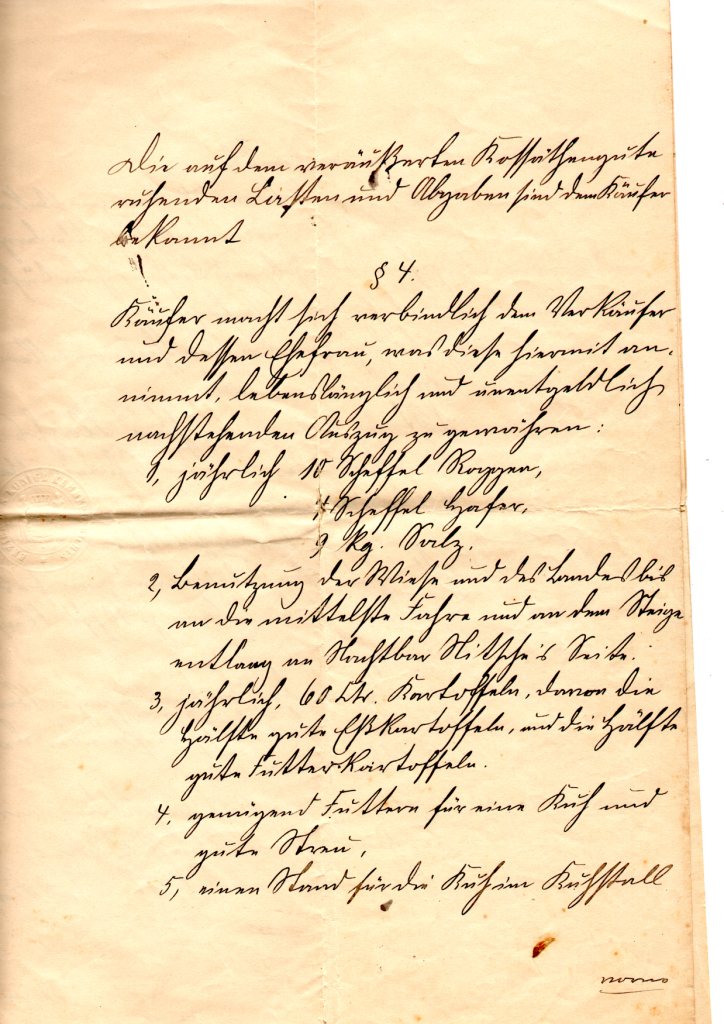 Die auf dem veräußerten Kossäthengute
ruhenden Lasten und Abgaben sind dem Käufer
bekannt
§ 4.
Käufer macht sich verbindlich dem Verkäufer
und dessen Ehefrau, was diese hiermit an-
nimmt, lebenslänglich und unentgeldlich
nachstehenden Auszug zu gewähren:
1, jährlich 10 Scheffel Roggen,
Scheffel Hafer,
9 kg. Salz,
2, Benutzung der Wiese und des Landes bis
an die mittelste Fahre und an dem Steige
entlang an Nachtbar Nitsche's Seite.
3, jährlich, 60 Ctr. Kartoffeln, davon die
Hälfte gute Eßkartoffeln, und die Hälfte
gute Futterkartoffeln.
4, genügend Futtern für eine Kuh und
gute Streu,
5, einen Stand für die Kuh im Kuhstall